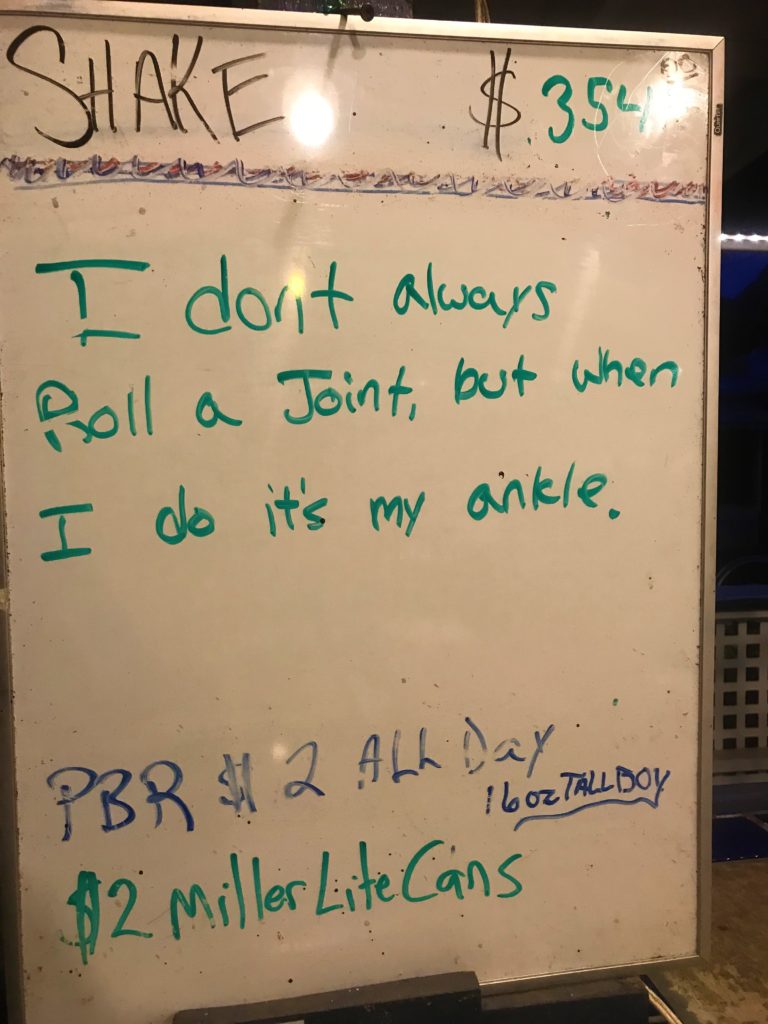 SHAKE $ 354
I don't always
Roll a Joint, but when
I do it's my ankle.
PBR $2 ALL Day
16oz TALLBOY
$2 Miller Lite Cans